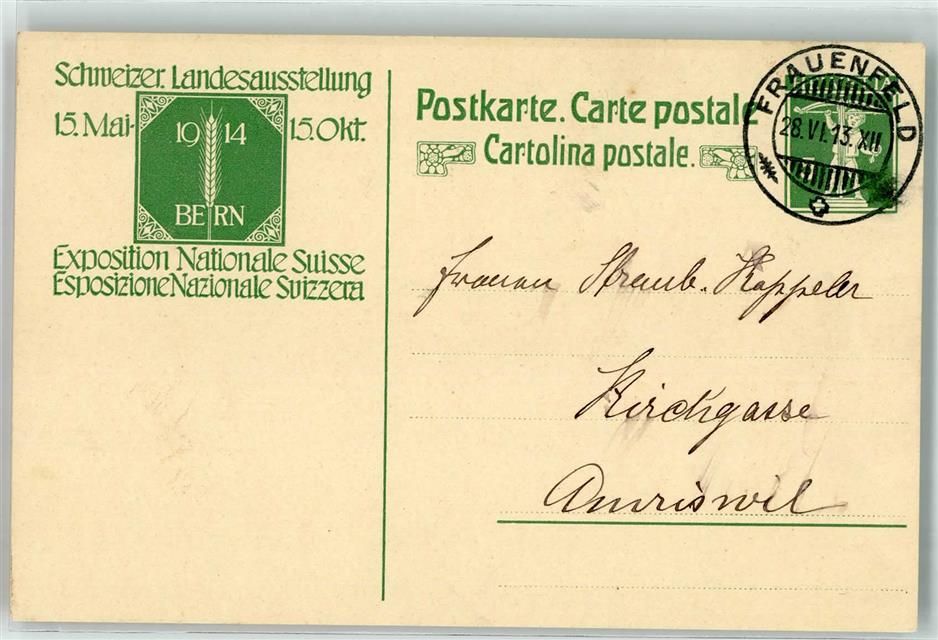 Schweizer. Landesausstellung
15. Mai - 15. Okt.
19 14
BERN
Exposition Nationale Suisse
Esposizione Nazionale Svizzera
Postkarte. Carte postale
Cartolina postale.
FRAUENFELD
28.VI.13.XII
Straub-Kappeler
Kirchgasse
Amriswil